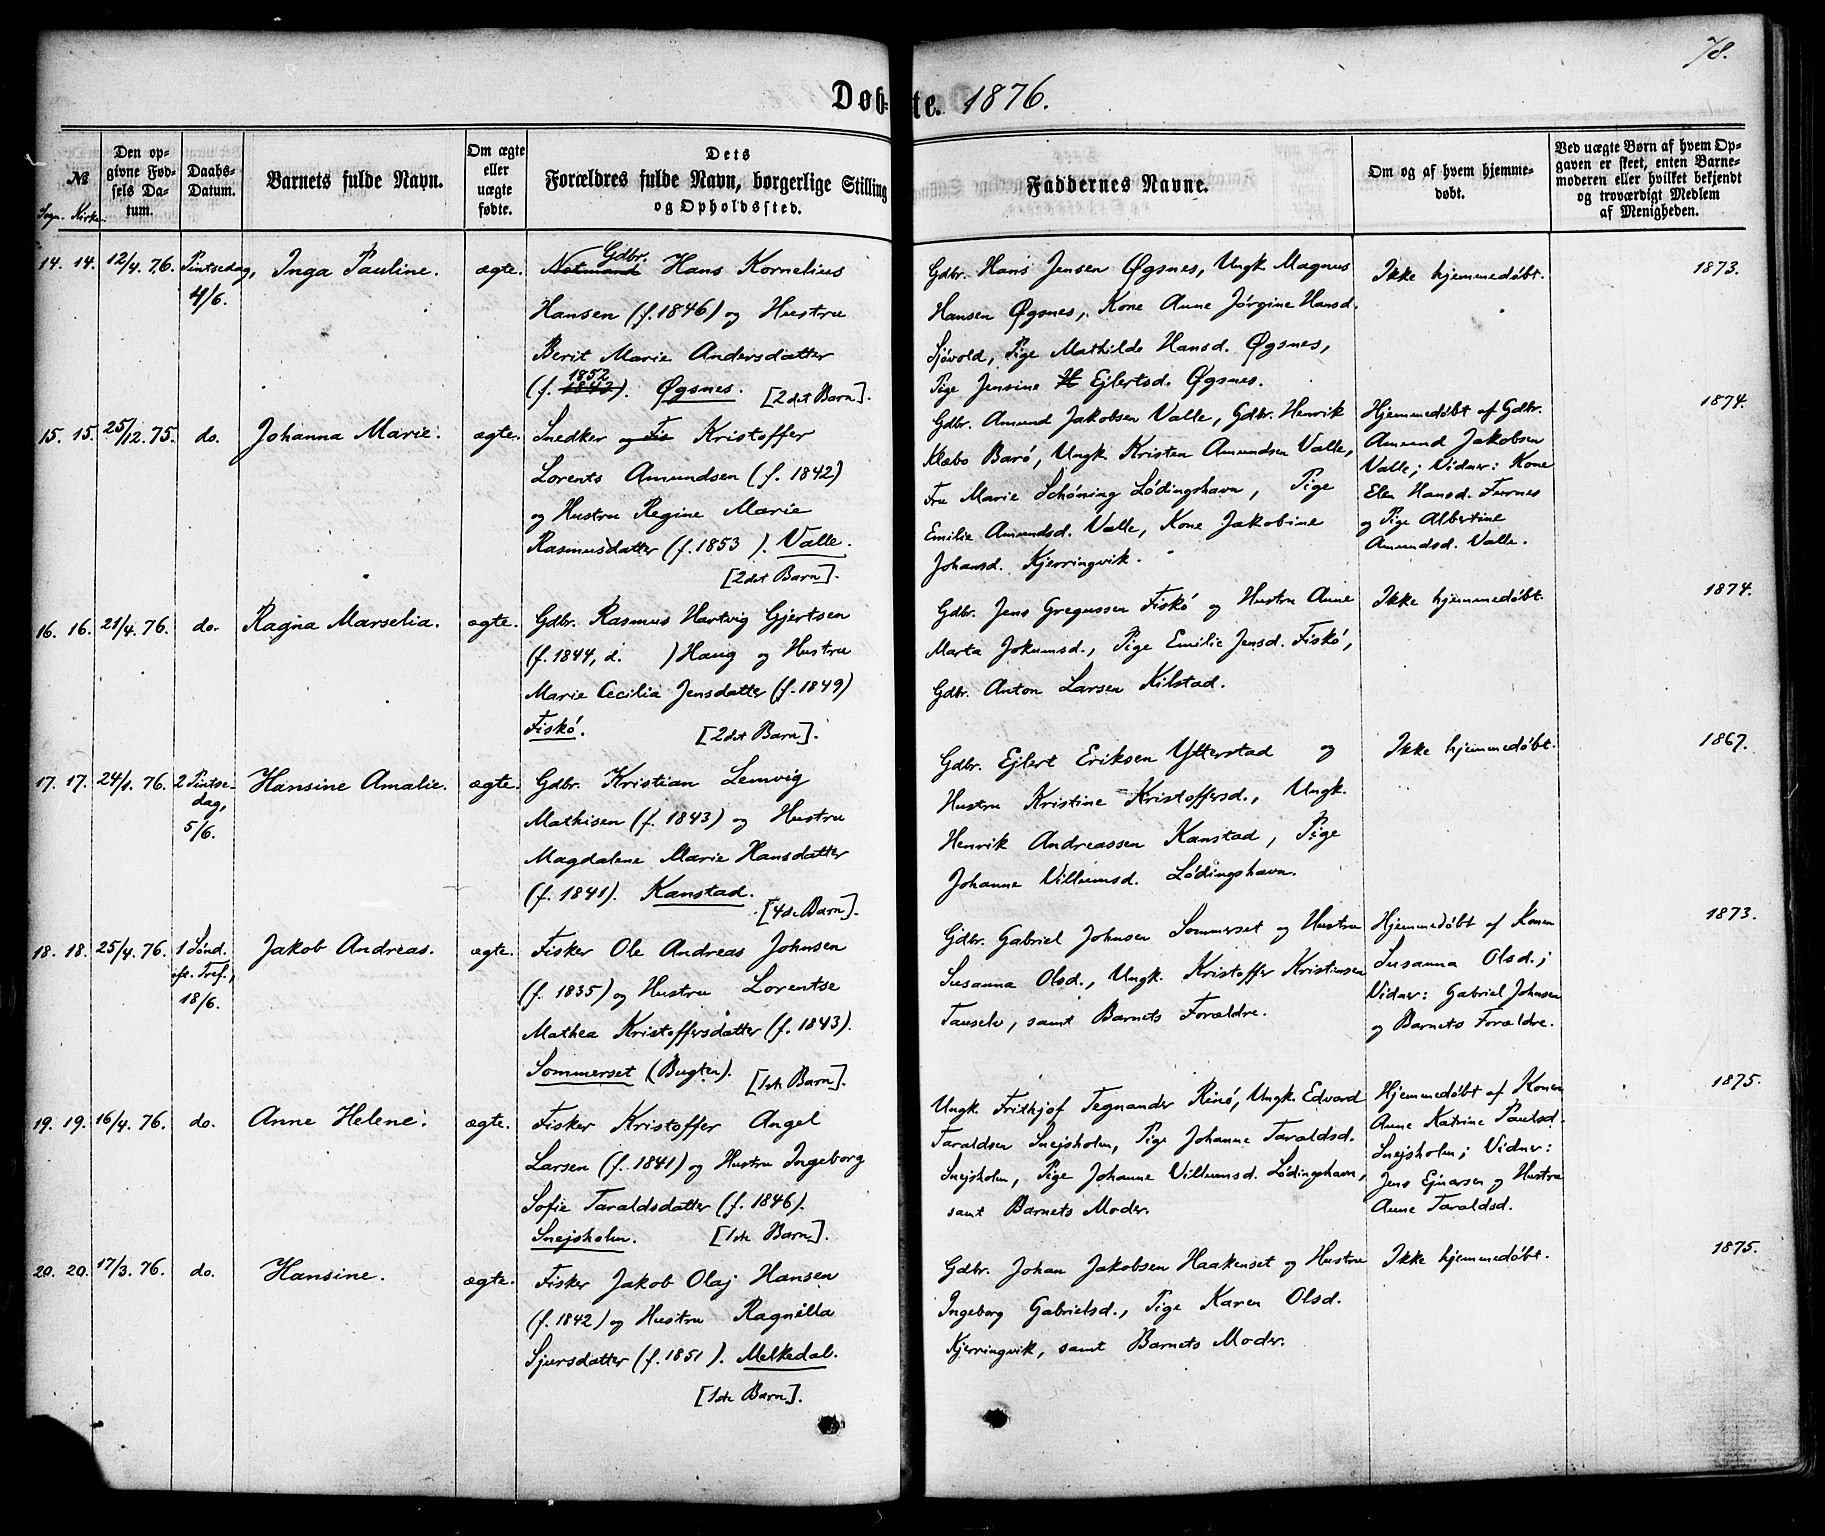 78.
Døbte. 1876.
№
Sogn. Kirke.
Den opgivne Fødsels Datum.
Daabs-Datum.
Barnets fulde Navn.
Om ægte eller uægte fødte.
Dets Forældres fulde Navn, borgerlige Stilling og Opholdssted.
Faddernes Navne.
Om og af hvem hjemmedøbt.
Ved uægte Børn af hvem Opgaven er skeet, enten Barnemoderen eller hvilket bekjendt og troværdigt Medlem af Menigheden.
14. 14. 12/4. 76. Pintsedag, 4/6. Inga Pauline. ægte.
Gdbr.
Notmand Hans Kornelius
Hansen (f. 1846) og Hustru
Berit Marie Andersdatter
1852
(f. 1843). Øgsnes. [2det Barn].
Gdbr. Hans Jensen Øgsnes, Ungk. Magnus
Hansen Øgsnes, Kone Anne Jørgine Hansd.
Sjövold, Pige Mathilde Hansd. Øgsnes,
Pige Jensine H Ejlertsd. Øgsnes.
Ikke hjemmedøbt.
1873.
15. 15. 25/12. 75. do. Johanna Marie. ægte.
Snedker og Fis Kristoffer
Lorents Amundsen (f. 1842)
og Hustru Regine Marie
Rasmusdatter (f. 1853 ). Valle.
[2det Barn].
Gdbr. Amund Jakobsen Valle, Gdbr. Henrik
Klæbo Barö, Ungk. Kristen Amundsen Valle,
Fru Marie Schöning Lödingshavn, Pige
Emilie Amundsd. Valle, Kone Jakobine
Johansd. Kjerringvik.
Hjemmedøbt af Gdbr.
Amund Jakobsen
Valle; Vidner: Kone
Elen Hansd. Furnes
og Pige Albertine
Amundsd. Valle.
1874.
16. 16. 21/4. 76. do. Ragna Marselia. ægte.
Gdbr. Rasmus Hartvig Gjertsen
(f. 1844, d. ) Haug og Hustru
Marie Cecilia Jensdatter (f. 1849)
Fiskö. [2det Barn].
Gdbr. Jens Gregussen Fiskö og Hustru Anne
Marta Jokumsd., Pige Emilie Jensd. Fiskö,
Gdbr. Anton Larsen Kilstad.
Ikke hjemmedøbt.
1874.
17. 17. 24/1. 76. 2 Pintsedag, 5/6. Hansine Amalie. ægte.
Gdbr. Kristian Lemvig
Mathisen (f. 1843) og Hustru
Magdalene Marie Hansdatter
(f. 1841). Kanstad.
[4de Barn].
Gdbr. Ejlert Eriksen Ytterstad og
Hustru Kristine Kristoffersd., Ungk.
Henrik Andreassen Kanstad, Pige
Johanne Villumsd. Lödingshavn.
Ikke hjemmedøbt.
1867.
18. 18. 25/4. 76. 1 Sönd. eft. Tref., 18/6. Jakob Andreas. ægte.
Fisker Ole Andreas Johnsen
(f. 1835) og Hustru Lorentse
Mathea Kristoffersdatter (f. 1843).
Sommerset (Bugten). [1ste Barn].
Gdbr. Gabriel Johnsen Sommerset og Hustru
Susanna Olsd., Ungk. Kristoffer Kristensen
Tauselv, samt Barnets Forældre.
Hjemmedøbt af Konen
Susanna Olsd.;
Vidner: Gabriel Johnsen
og Barnets Forældre.
1873.
19. 19. 16/4. 76. do. Anne Helene. ægte.
Fisker Kristoffer Angel
Larsen (f. 1841) og Hustru Ingeborg
Sofie Taraldsdatter (f. 1846).
Snejsholm. [1ste Barn].
Ungk. Frithjof Tegnander Rinö, Ungk. Edvard
Taraldsen Snejsholm, Pige Johanne Taraldsd.
Snejsholm, Pige Johanne Villumsd. Lödingshavn,
samt Barnets Moder.
Hjemmedøbt af Konen
Anne Katrine Paulsd.
Snejsholm; Vidner:
Jens Ejnarsen og Hustru
Anne Taraldsd.
1875.
20. 20. 17/3. 76. do. Hansine. ægte.
Fisker Jakob Olaj Hansen
(f. 1842) og Hustru Ragnilla
Sjursdatter (f. 1851 ). Melkedal.
[1ste Barn].
Gdbr. Johan Jakobsen Haakenset og Hustru
Ingeborg Gabrielsd., Pige Karen Olsd.
Kjerringvik, samt Barnets Moder.
Ikke hjemmedøbt.
1875.